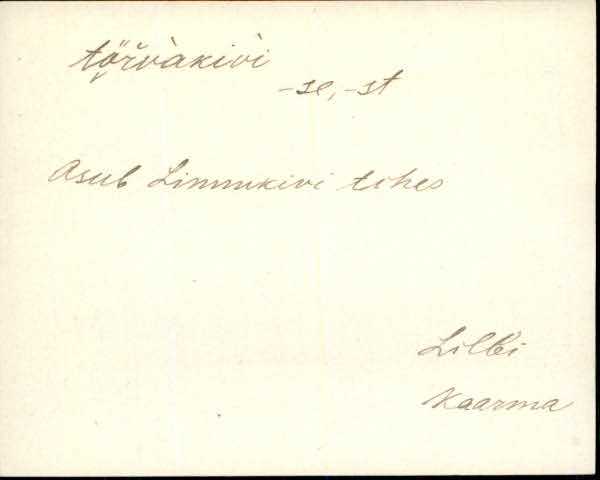 tö̬řvàkivì
-se, -st
Asub Linnukivi lähes
Lilbi
Kaarma